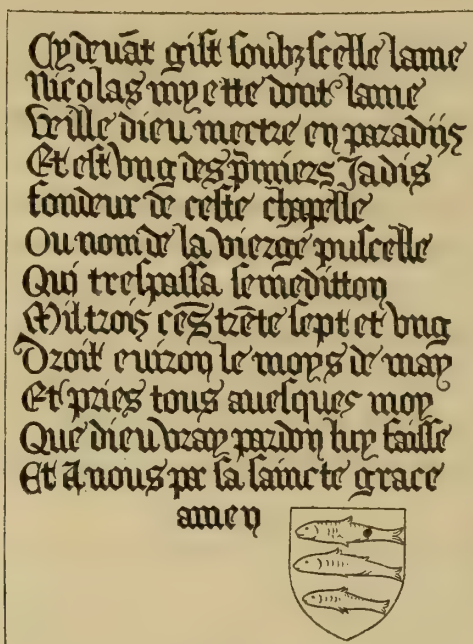 Cy deuāt gist soubz scelle lame
Nicolas myette dont lame
Veille dieu mectre en paradijs
Et est vng des p̄miers Jadis
fondeur de ceste chapelle
Ou nom de la vierge puscelle
Qui trespassa se meditton
Mil trois cēs trēte sept et vng
Droit euiron le moys de may
Et pries tous auesques moy
Que dieu vray pardon luy faisse
Et A nous par sa saincte grace
amen